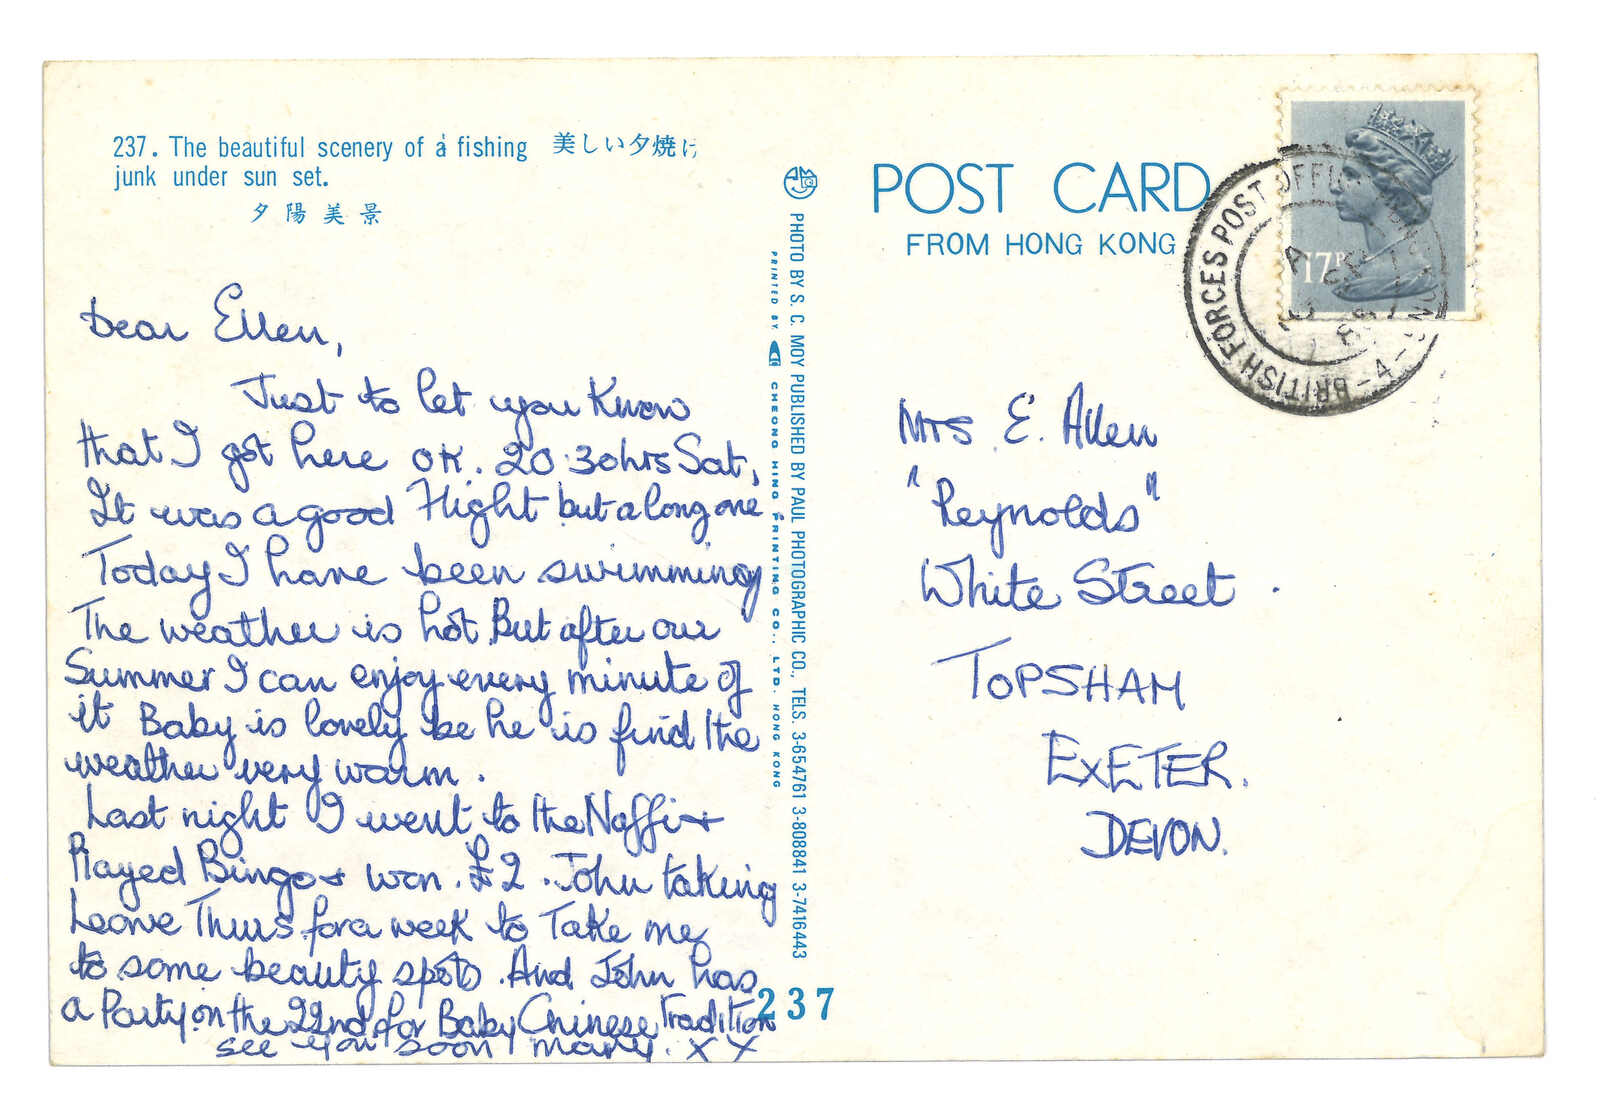 237. The beautiful scenery of a fishing
junk under sun set.
美しい夕焼け
夕陽美景
Dear Ellen,
Just to let you know
that I got here OK. 20.30hrs Sat,
It was a good Flight but a long one
Today I have been swimming
The weather is hot. But after our
Summer I can enjoy every minute of
it Baby is lovely be he is find the
weather very warm.
Last night I went to the Naffi +
Played Bingo + won. £2. John taking
Leave Thurs for a week to Take me
to some beauty spots. And John has
a Party on the 22nd for Baby Chinese Tradition
see you soon Mary. x x
PHOTO BY S. C. MOY PUBLISHED BY PAUL PHOTOGRAPHIC CO., TELS. 3-654761 3-808841 3-7416443
PRINTED BY CHEONG HING PRINTING CO., LTD. HONG KONG
237
POST CARD
FROM HONG KONG
17P
BRITISH FORCES POST OFFICE
Mrs E. Allen
"Reynolds"
White Street.
TOPSHAM
EXETER.
DEVON.